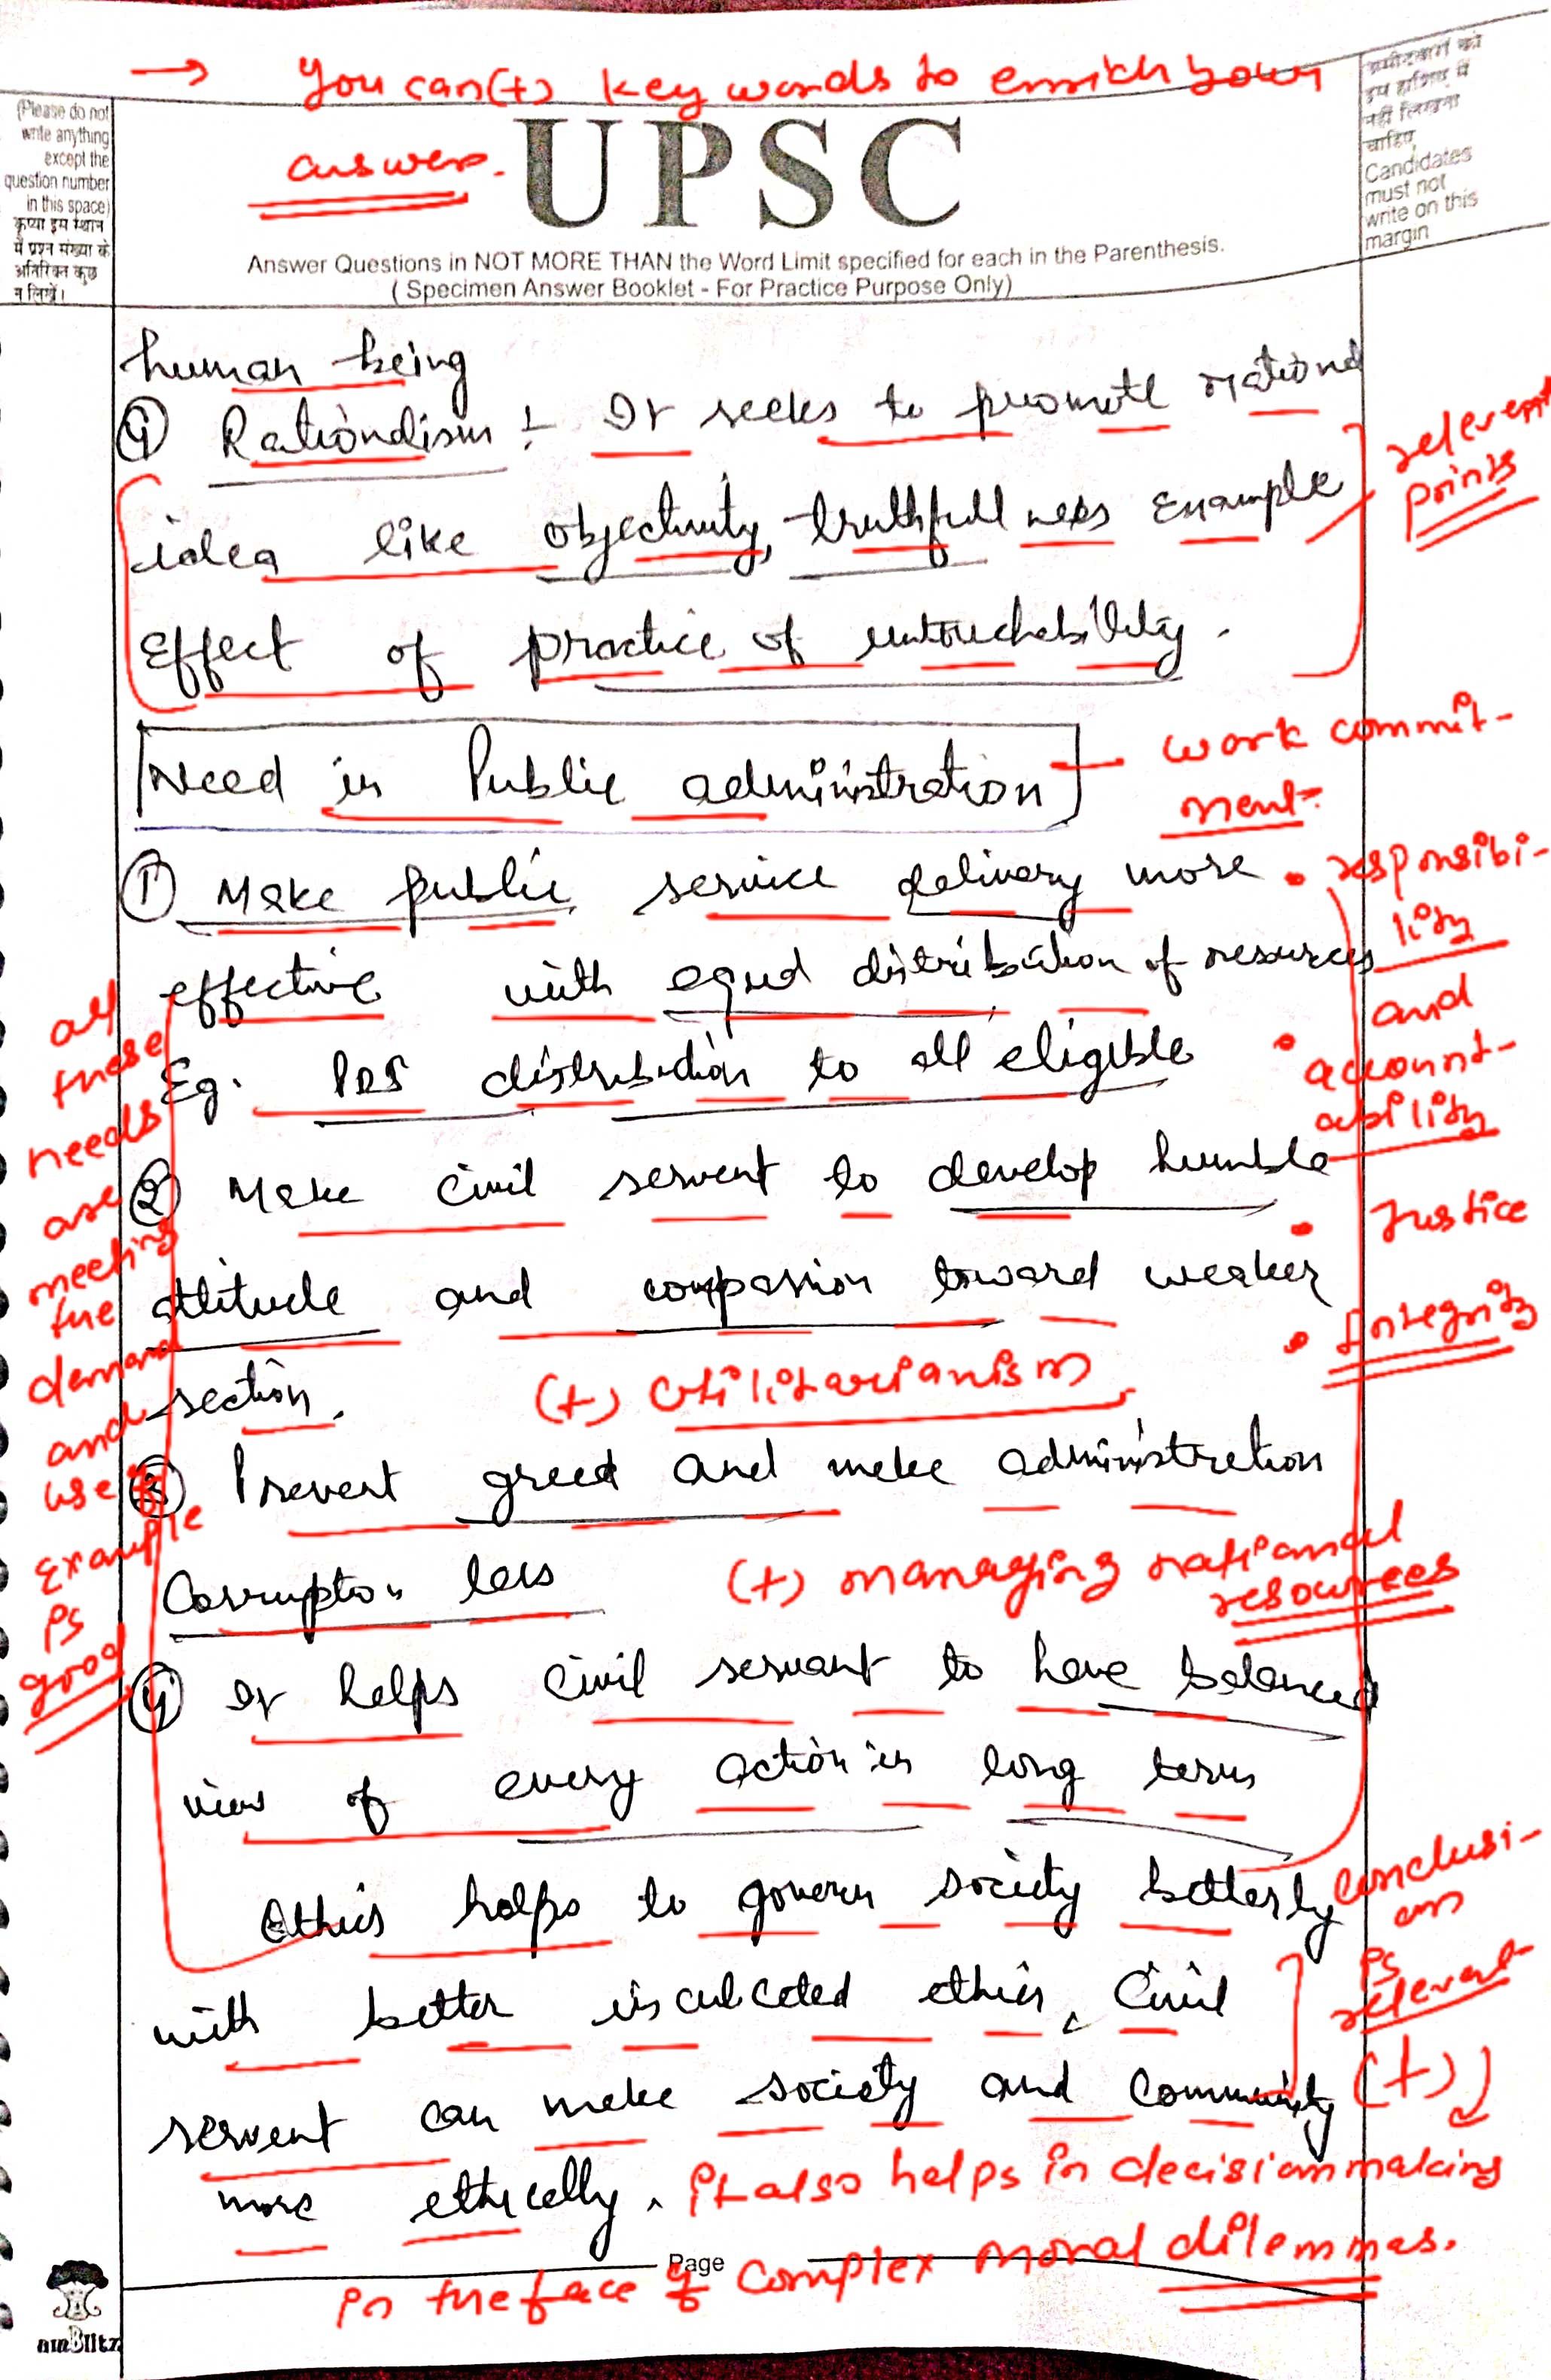 → You can (+) key words to enrich your
answer.
(Please do not
write anything
except the
question number
in this space)
कृप्या इस स्थान
में प्रश्न संख्या के
अतिरिक्त कुछ
न लिखें।
UPSC
Answer Questions in NOT MORE THAN the Word Limit specified for each in the Parenthesis.
( Specimen Answer Booklet - For Practice Purpose Only)
उम्मीदवारों को
इस हाशिए में
नहीं लिखना
चाहिए
Candidates
must not
write on this
margin
human being
④ Rationalism :- It seeks to promote rational
idea like objectivity, truthfullness Example
Effect of practice of untouchability.
relevent
points
Need in Public administration
work commit-
ment.
① Make public service delivery more
effective with equal distribution of resources
Eg. PDS distribution to all eligible
② Make civil servent to develop humble
attitude and compassion toward weaker
section.
(+) Utilitarianism
③ Prevent greed and make administration
Corruption less
(+) managing national
resources
④ It helps civil servant to have balanced
view of every action in long term
• responsibi-
lity
and
• account-
ability
• Justice
• Integrity
all
these
needs
are
meeting
the
demand
and
use
example
is
good
Ethics helps to govern society betterly
with better inculcated ethics, Civil
servent can make society and community
more ethically.
conclusi-
on
is
relevant
(+)
it also helps in decision making
in the face of complex moral dilemmas.
Page
aimBlitz